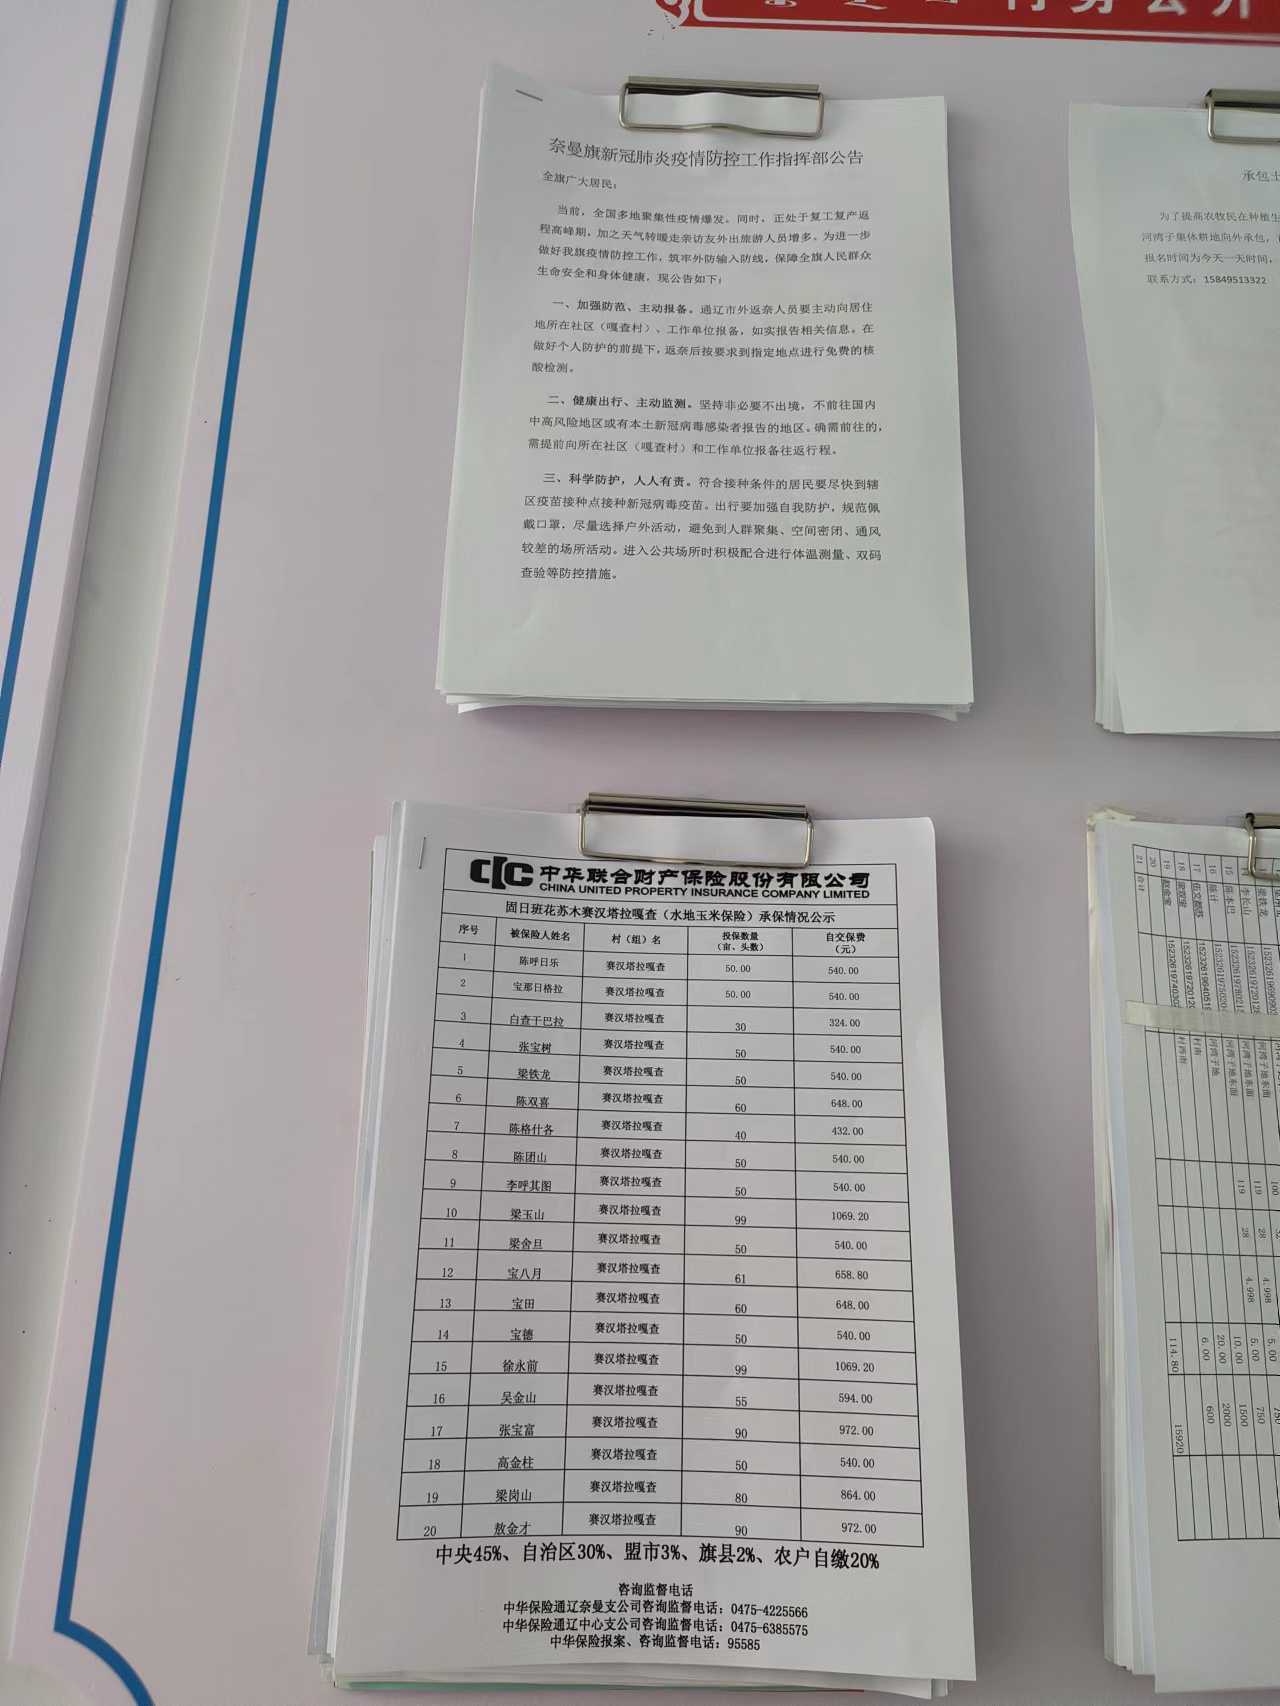 村务公开
奈曼旗新冠肺炎疫情防控工作指挥部公告
全旗广大居民:
当前,全国多地聚集性疫情爆发。同时,正处于复工复产返
程高峰期,加之天气转暖走亲访友外出旅游人员增多。为进一步
做好我旗疫情防控工作,筑牢外防输入防线,保障全旗人民群众
生命安全和身体健康,现公告如下:
一、加强防范、主动报备。通辽市外返奈人员要主动向居住
地所在社区(嘎查村)、工作单位报备,如实报告相关信息。在
做好个人防护的前提下,返奈后按要求到指定地点进行免费的核
酸检测。
二、健康出行、主动监测。坚持非必要不出境,不前往国内
中高风险地区或有本土新冠病毒感染者报告的地区。确需前往的,
需提前向所在社区(嘎查村)和工作单位报备往返行程。
三、科学防护,人人有责。符合接种条件的居民要尽快到辖
区疫苗接种点接种新冠病毒疫苗。出行要加强自我防护,规范佩
戴口罩,尽量选择户外活动,避免到人群聚集、空间密闭、通风
较差的场所活动。进入公共场所时积极配合进行体温测量、双码
查验等防控措施。
承包土
为了提高农牧民在种植生
河湾子集体耕地向外承包,
报名时间为今天一天时间,
联系方式:15849513322
CIC 中华联合财产保险股份有限公司
CHINA UNITED PROPERTY INSURANCE COMPANY LIMITED
固日班花苏木赛汉塔拉嘎查(水地玉米保险)承保情况公示
序号 被保险人姓名 村(组)名 投保数量(亩、头数) 自交保费(元)
1 陈呼日乐 赛汉塔拉嘎查 50.00 540.00
2 宝那日格拉 赛汉塔拉嘎查 50.00 540.00
3 白查干巴拉 赛汉塔拉嘎查 30 324.00
4 张宝树 赛汉塔拉嘎查 50 540.00
5 梁铁龙 赛汉塔拉嘎查 50 540.00
6 陈双喜 赛汉塔拉嘎查 60 648.00
7 陈格什各 赛汉塔拉嘎查 40 432.00
8 陈团山 赛汉塔拉嘎查 50 540.00
9 李呼其图 赛汉塔拉嘎查 50 540.00
10 梁玉山 赛汉塔拉嘎查 99 1069.20
11 梁舍旦 赛汉塔拉嘎查 50 540.00
12 宝八月 赛汉塔拉嘎查 61 658.80
13 宝田 赛汉塔拉嘎查 60 648.00
14 宝德 赛汉塔拉嘎查 50 540.00
15 徐永前 赛汉塔拉嘎查 99 1069.20
16 吴金山 赛汉塔拉嘎查 55 594.00
17 张宝富 赛汉塔拉嘎查 90 972.00
18 高金柱 赛汉塔拉嘎查 50 540.00
19 梁岗山 赛汉塔拉嘎查 80 864.00
20 敖金才 赛汉塔拉嘎查 90 972.00
中央45%、自治区30%、盟市3%、旗县2%、农户自缴20%
咨询监督电话
中华保险通辽奈曼支公司咨询监督电话:0475-4225566
中华保险通辽中心支公司咨询监督电话:0475-6385575
中华保险报案、咨询监督电话:95585
梁铁龙 河湾子地东面 119 28 4.998 5.00 750
李长山 河湾子地东面 119 28 4.998 5.00 750
15 陈本巴 河湾子地东面 10.00 1500
16 陈计 河湾子地 20.00 2000
17 村南 6.00 600
18 梁双宝 村西南
19 赵金宝
20
21 合计 114.80 15920